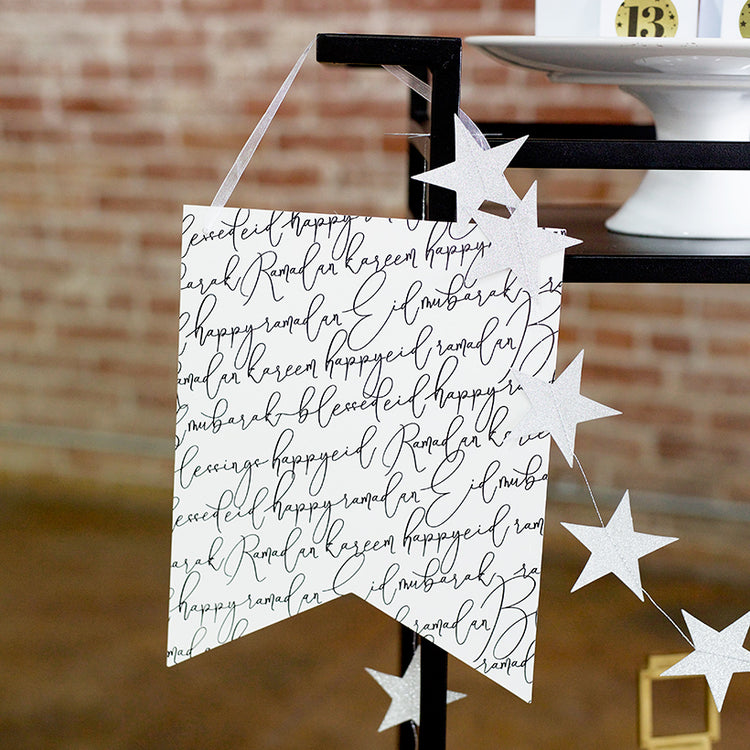 13
blessed eid happy
Ramadan kareem happy
happy ramadan Eid mubarak
ramadan kareem happy eid ramadan
mubarak blessed eid happy
blessings happy eid Ramadan
blessed eid happy ramadan Eid mubarak
Ramadan kareem happy eid
happy ramadan Eid mubarak
ramadan